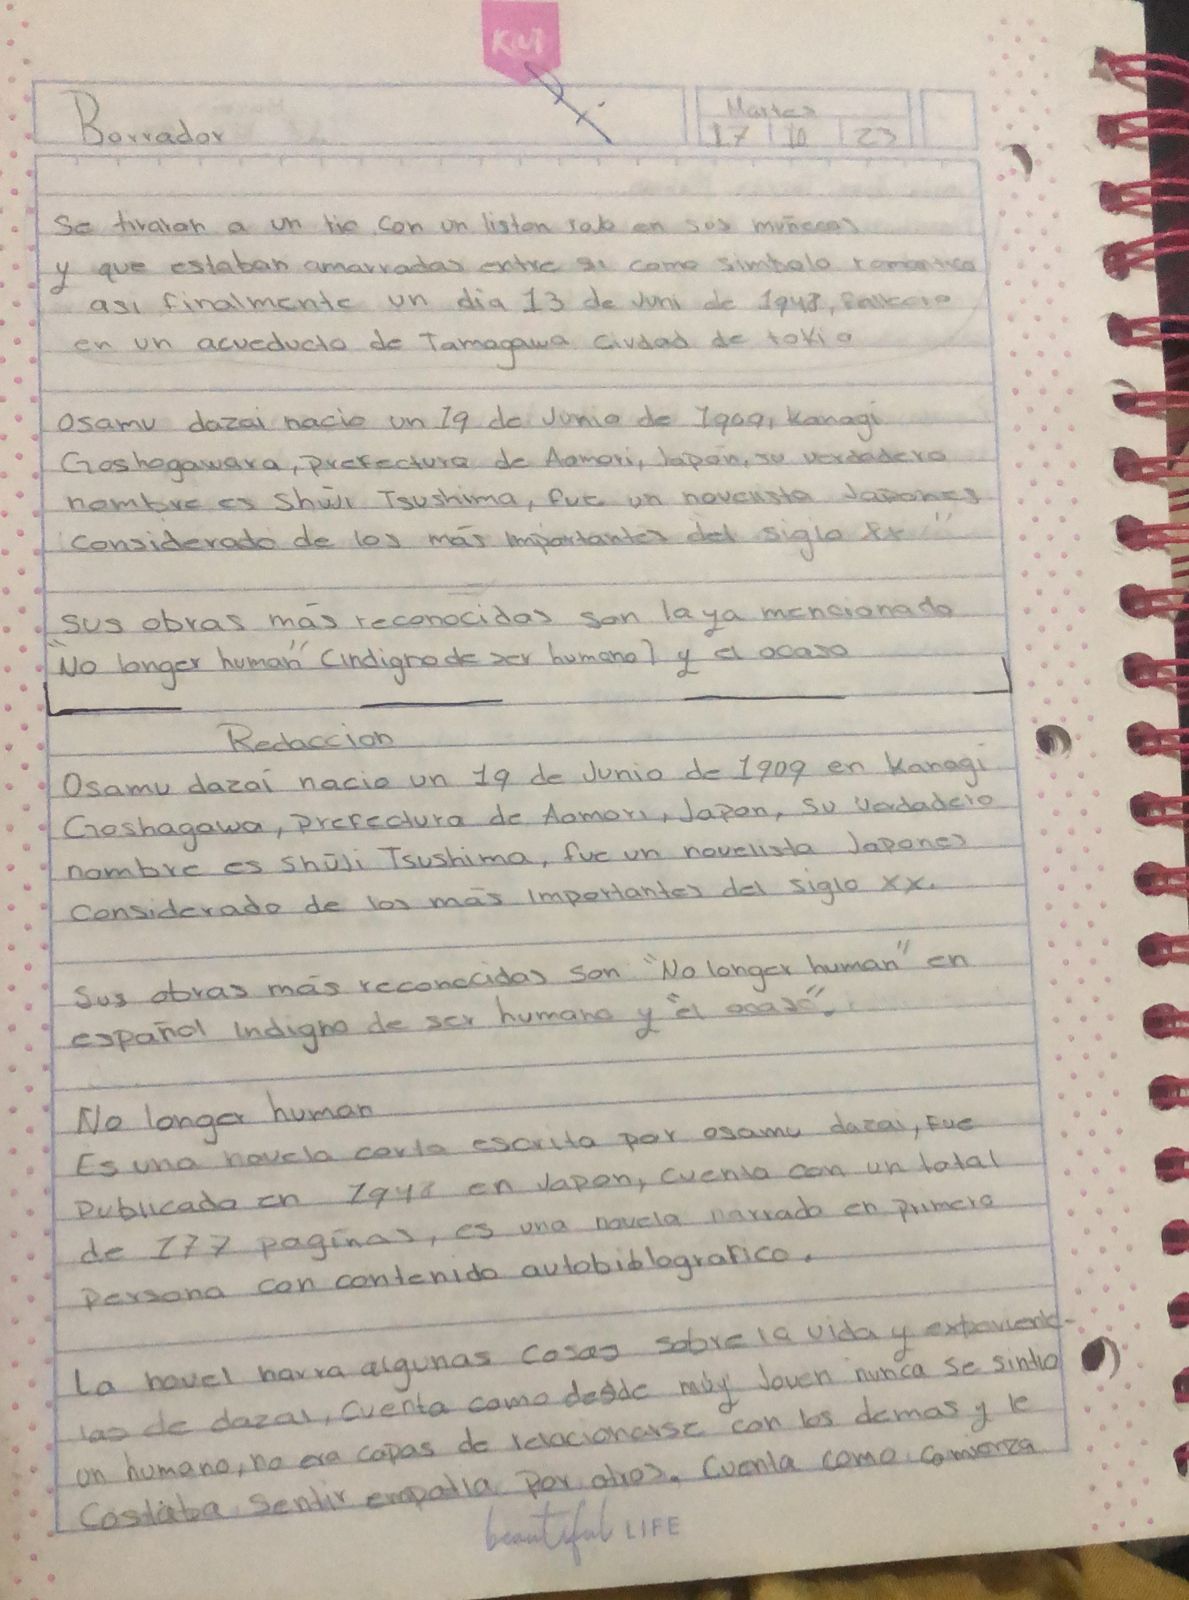 KiWi
Borrador
Martes
17 10 23
Se tiraron a un rio con un liston rojo en sus muñecas
y que estaban amarradas entre si como simbolo romantico
asi finalmente un dia 13 de Juni de 1948, fallecio
en un acueducto de Tamagawa ciudad de tokio
Osamu dazai nacio un 19 de Junio de 1909, Kanagi
Goshogawara, prefectura de Aomori, Japon, su verdadero
nombre es Shūji Tsushima, fue un novelista Japones
considerado de los más importantes del siglo xx"
Sus obras más reconocidas son la ya mencionado
"No longer human" (indigno de ser humano) y el ocaso
Redaccion
Osamu dazai nacio un 19 de Junio de 1909 en Kanagi
Goshagawa, prefectura de Aomori, Japon, su verdadero
nombre es Shūji Tsushima, fue un novelista Japones
considerado de los más importantes del siglo xx.
Sus obras más reconocidas son "No longer human" en
español indigno de ser humano y "el ocaso".
No longer human
Es una novela corta escrita por osamu dazai, fue
publicada en 1948 en Japon, cuenta con un total
de 177 paginas, es una novela narrado en primera
persona con contenido autobiblografico.
La novel narra algunas cosas sobre la vida y experienc-
ias de dazai, cuenta como desde muy joven nunca se sintio
un humano, no era capas de relacionarse con los demas y le
costaba sentir empatia por otros. Cuenta como comienza
beautiful LIFE